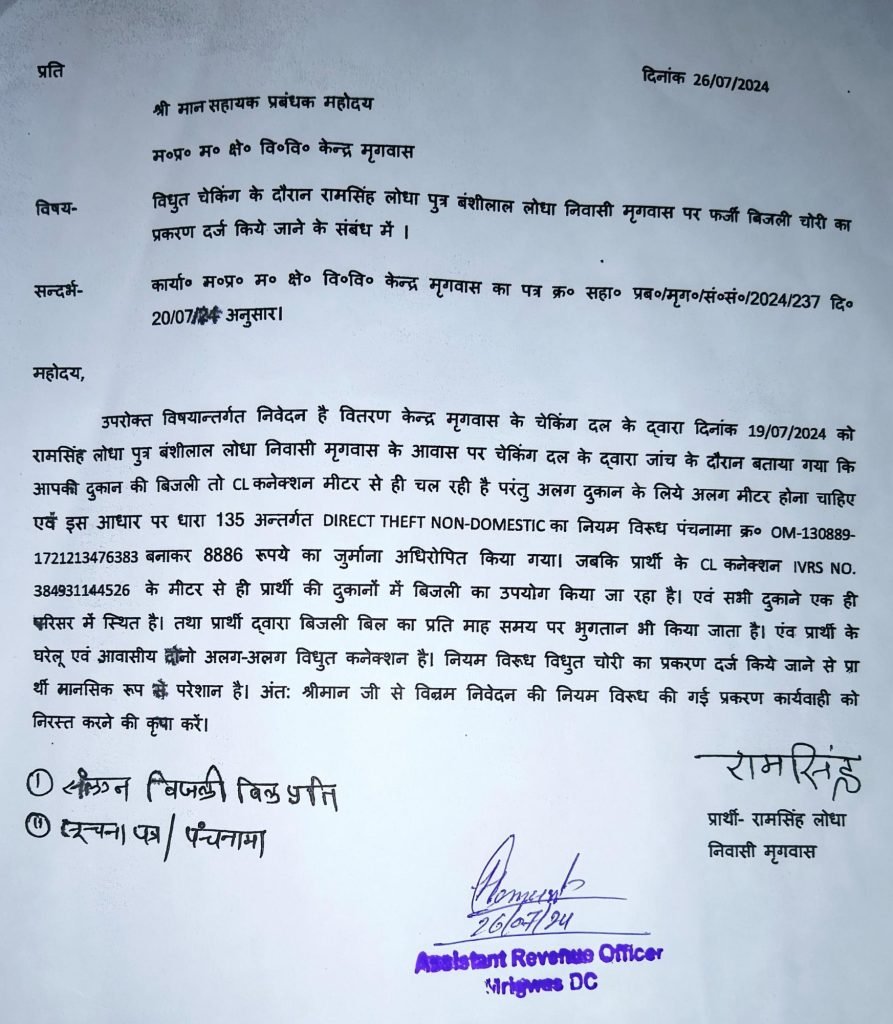 प्रति
दिनांक 26/07/2024
श्री मान सहायक प्रबंधक महोदय
म०प्र० म० क्षे० वि०वि० केन्द्र मृगवास
विषय- विधुत चेकिंग के दौरान रामसिंह लोधा पुत्र बंशीलाल लोधा निवासी मृगवास पर फर्जी बिजली चोरी का
प्रकरण दर्ज किये जाने के संबंध में ।
सन्दर्भ- कार्या० म०प्र० म० क्षे० वि०वि० केन्द्र मृगवास का पत्र क्र० सहा० प्रब०/मृग०/सं०सं०/2024/237 दि०
20/07/24 अनुसार।
महोदय,
उपरोक्त विषयान्तर्गत निवेदन है वितरण केन्द्र मृगवास के चेकिंग दल के द्वारा दिनांक 19/07/2024 को
रामसिंह लोधा पुत्र बंशीलाल लोधा निवासी मृगवास के आवास पर चेकिंग दल के द्वारा जांच के दौरान बताया गया कि
आपकी दुकान की बिजली तो CL कनेक्शन मीटर से ही चल रही है परंतु अलग दुकान के लिये अलग मीटर होना चाहिए
एवं इस आधार पर धारा 135 अन्तर्गत DIRECT THEFT NON-DOMESTIC का नियम विरूध पंचनामा क्र० OM-130889-
1721213476383 बनाकर 8886 रूपये का जुर्माना अधिरोपित किया गया। जबकि प्रार्थी के CL कनेक्शन IVRS NO.
384931144526 के मीटर से ही प्रार्थी की दुकानों में बिजली का उपयोग किया जा रहा है। एवं सभी दुकाने एक ही
परिसर में स्थित है। तथा प्रार्थी द्वारा बिजली बिल का प्रति माह समय पर भुगतान भी किया जाता है। एंव प्रार्थी के
घरेलू एवं आवासीय दोनो अलग-अलग विधुत कनेक्शन है। नियम विरूध विधुत चोरी का प्रकरण दर्ज किये जाने से प्रा
र्थी मानसिक रूप से परेशान है। अंत: श्रीमान जी से विन्रम निवेदन की नियम विरूध की गई प्रकरण कार्यवाही को
निरस्त करने की कृपा करें।
रामसिंह
① संलग्न बिजली बिल प्रति
② सूचना पत्र / पंचनामा
प्रार्थी- रामसिंह लोधा
निवासी मृगवास
26/07/24
Assistant Revenue Officer
Mrigwas DC